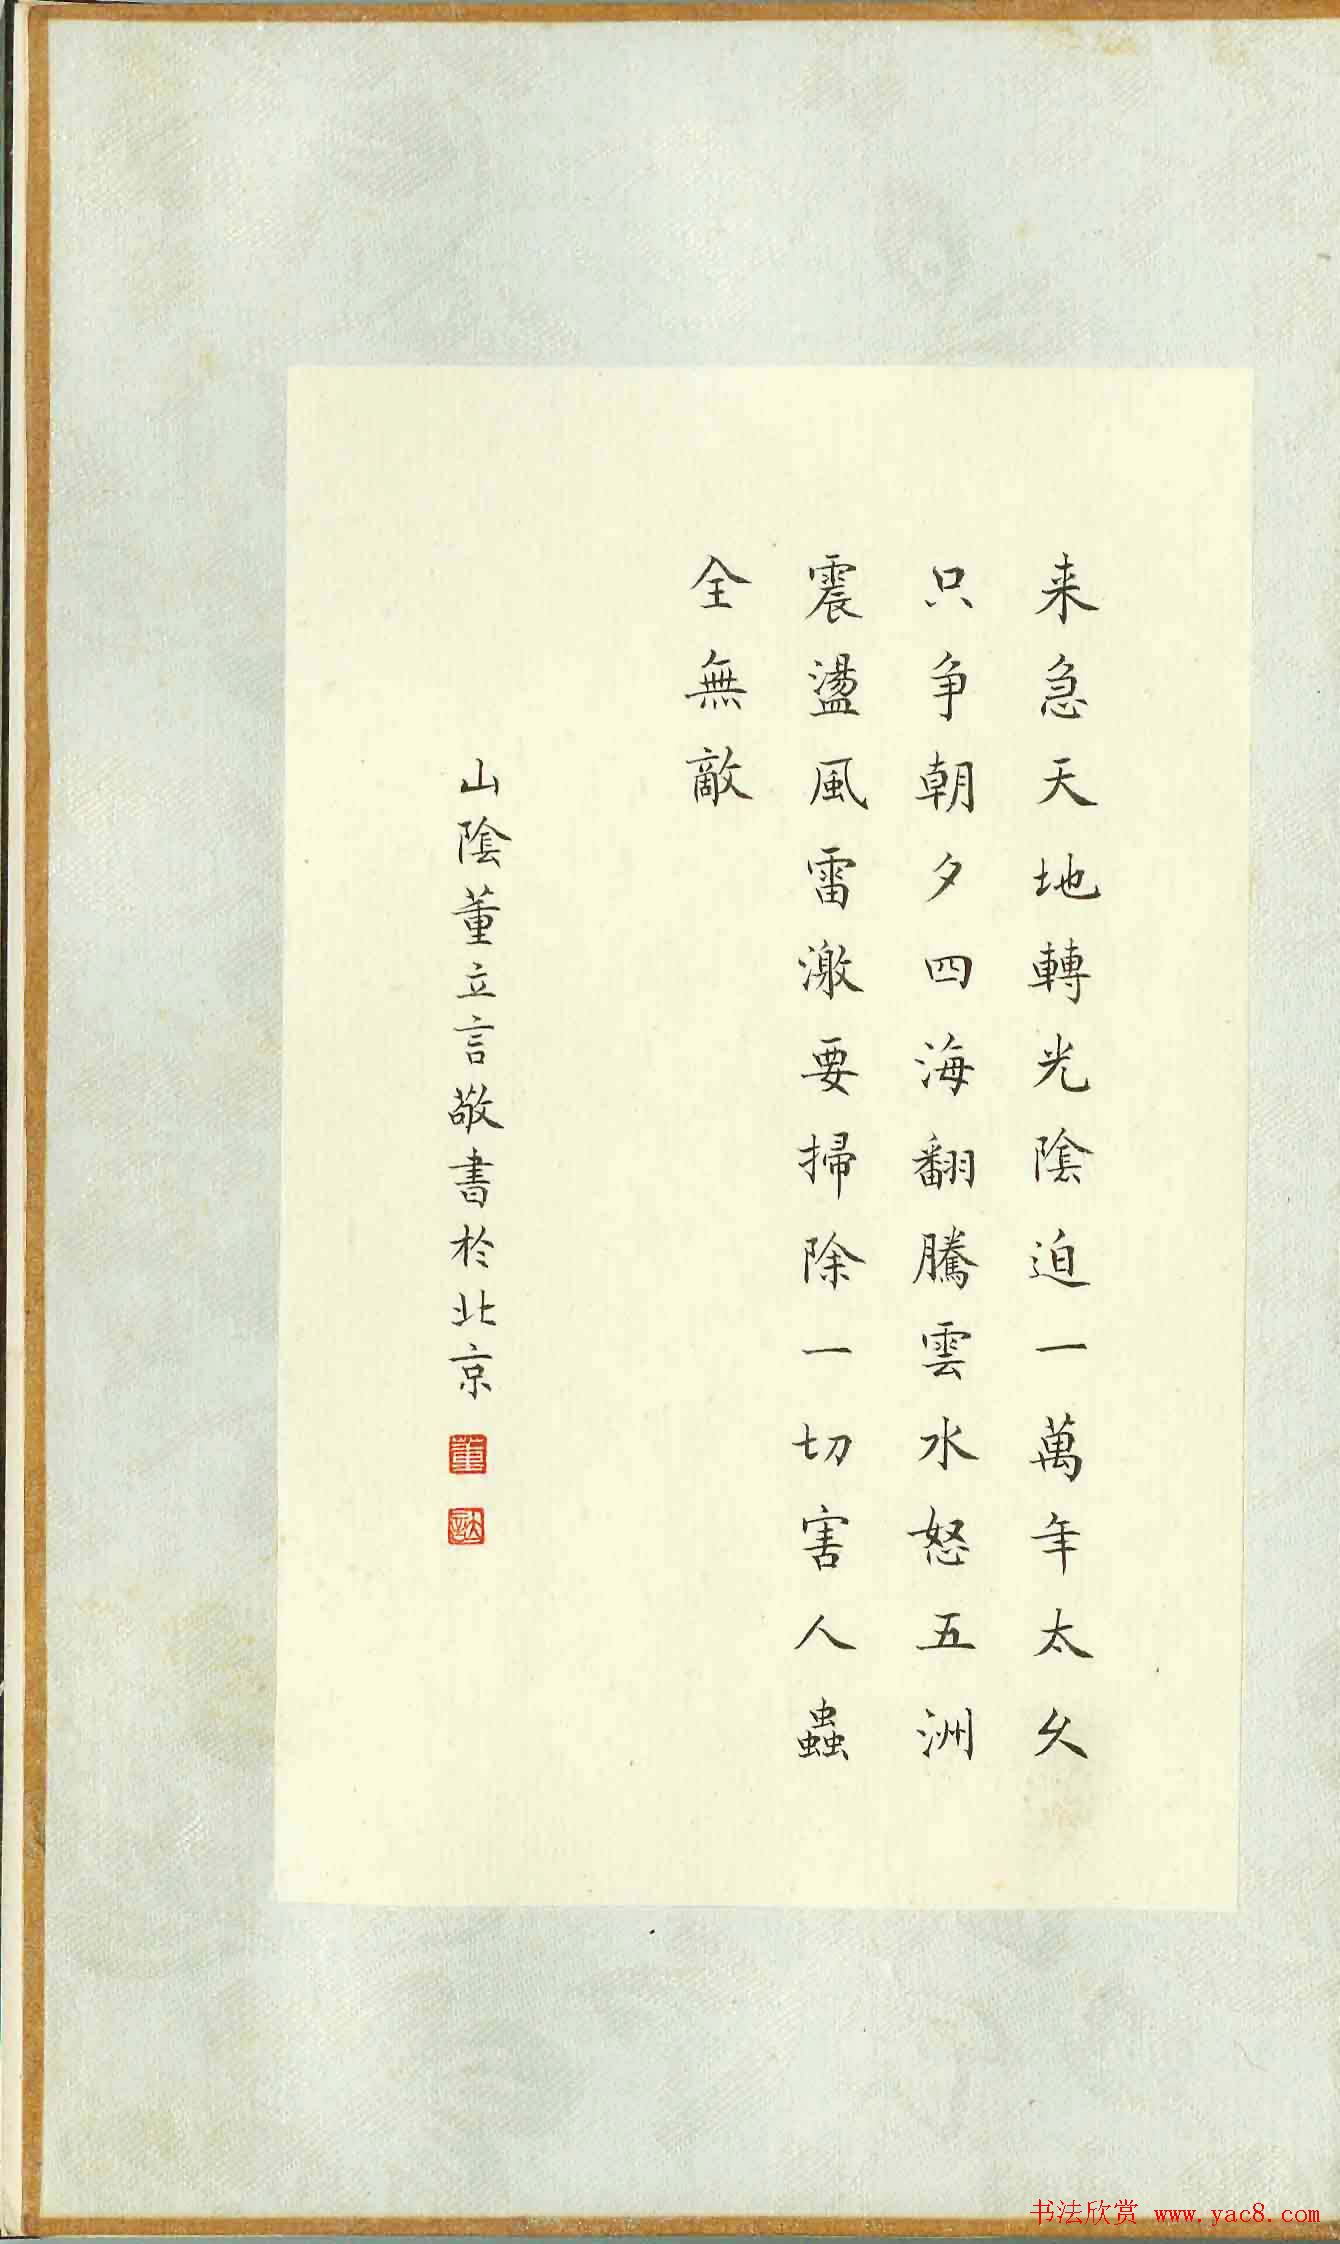 来急天地轉光陰迫一萬年太久
只争朝夕四海翻騰雲水怒五洲
震盪風雷激要掃除一切害人蟲
全無敵
山陰董立言敬書於北京
董
書法欣赏 www.yac8.com